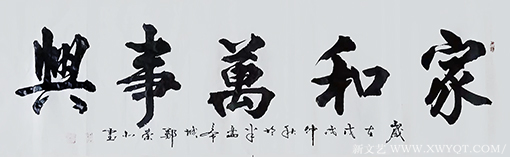 家和萬事興
歲在戊戌仲秋於半島奉城鄭榮水書
新文艺 WWW.XWYQT.COM